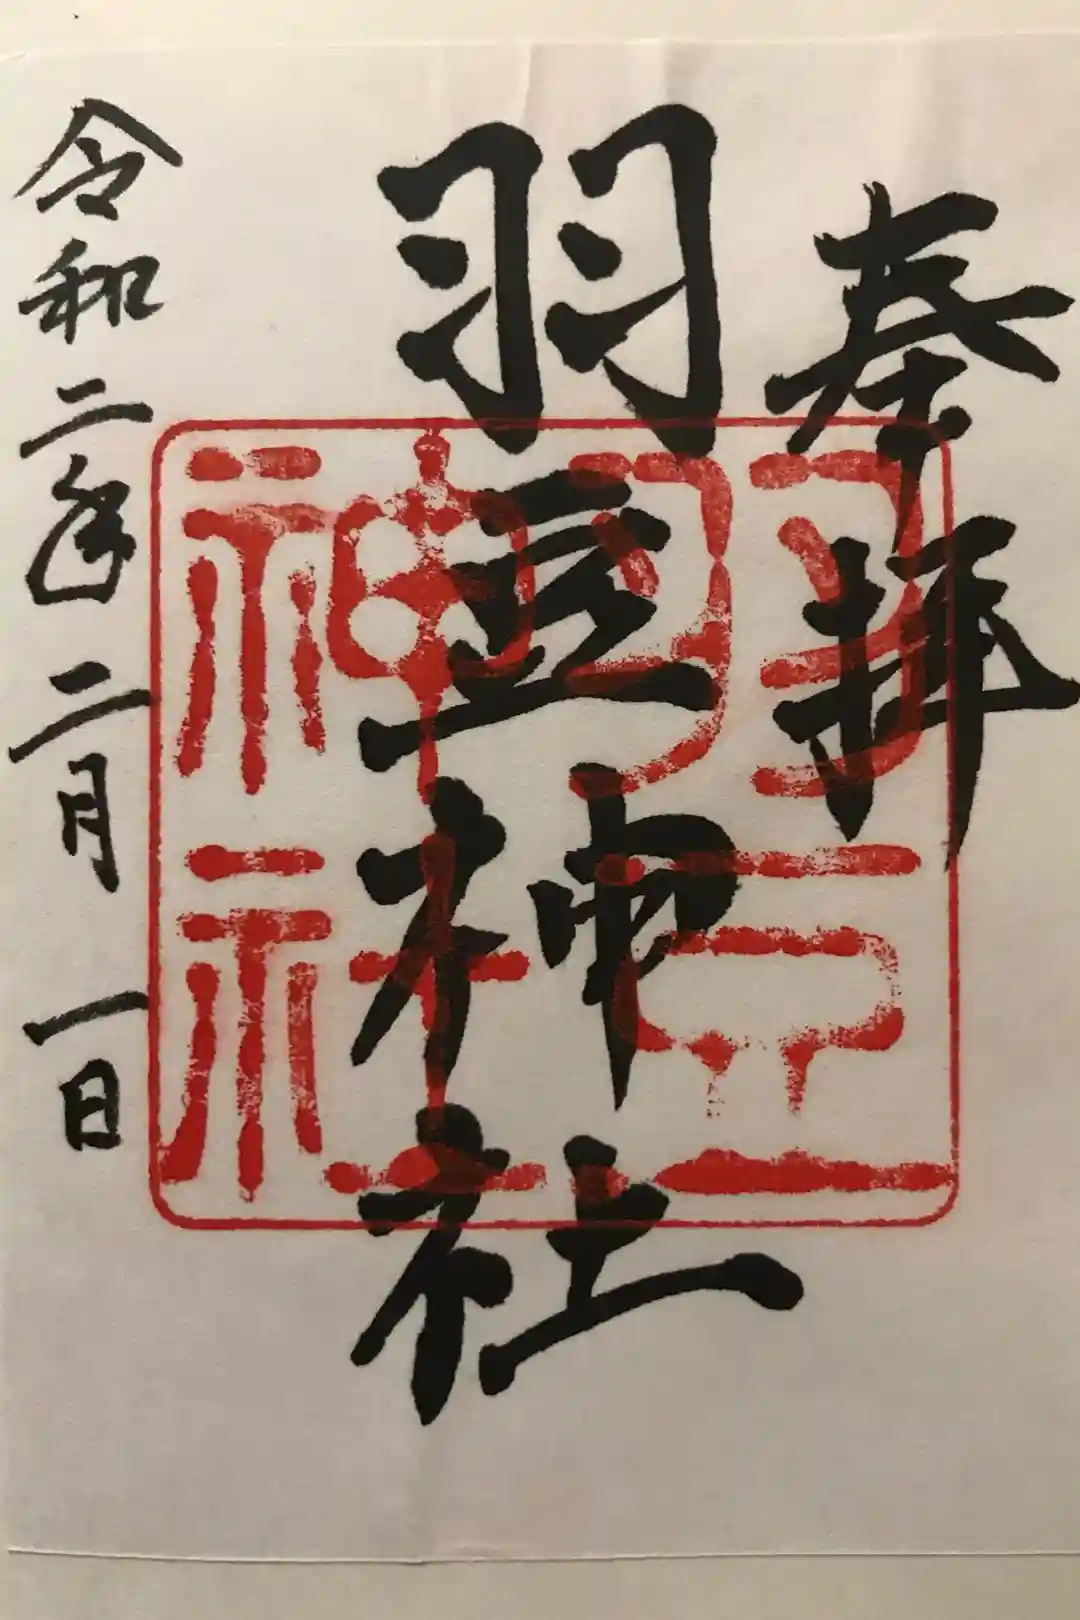 奉拝
羽豆神社
令和二年二月一日
羽豆
神社